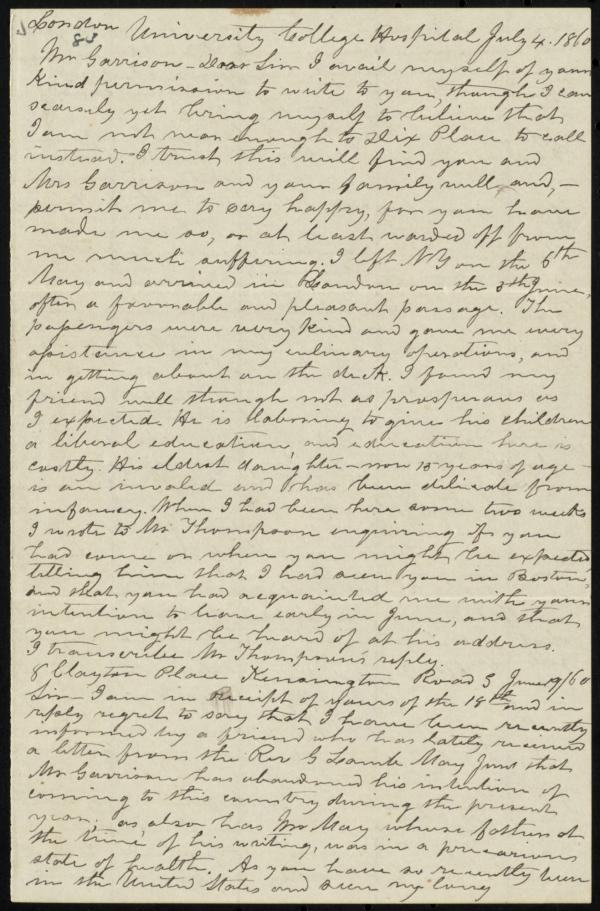 London
University College Hospital July 4. 1860
Mr Garrison - Dear Sir I avail myself of your
kind permission to write to you, though I can
scarsely yet bring myself to believe that
I am not near enough to Dix Place to call
instead. I trust this will find you and
Mrs Garrison and your family well and, -
permit me to say happy, for you have
made me so, or at least warded off from
me much suffering. I left N Y on the 6th
May and arrived in London on the 5th June,
after a favorable and pleasant passage. The
passengers were very kind and gave me every
assistance in my culinary operations, and
in getting about on the deck. I found my
friend well though not as prosperous as
I expected. He is laboring to give his children
a liberal education and education here is
costly. His eldest daughter - now 15 years of age -
is an invaled and has been delicate from
infancy. When I had been here some two weeks
I wrote to Mr Thompson enquiring if you
had come or when you might be expected
telling him that I had seen you in Boston,
and that you had acquainted me with your
intention to leave early in June, and that
you might be heard of at his address.
I transcribe Mr Thompson's reply.
8 Clayton Place Kensington Road S June 19/60
Sir - I am in receipt of yours of the 18th and in
reply regret to say that I have been recently
informed by a friend who has lately received
a letter from the Rev S May Junr that
Mr Garrison has abandoned his intention of
coming to this country during the present
year; as also has Mr May whose father at
the time of his writing, was in a precarious
state of health. As you have so recently been
in the United States and seen my long